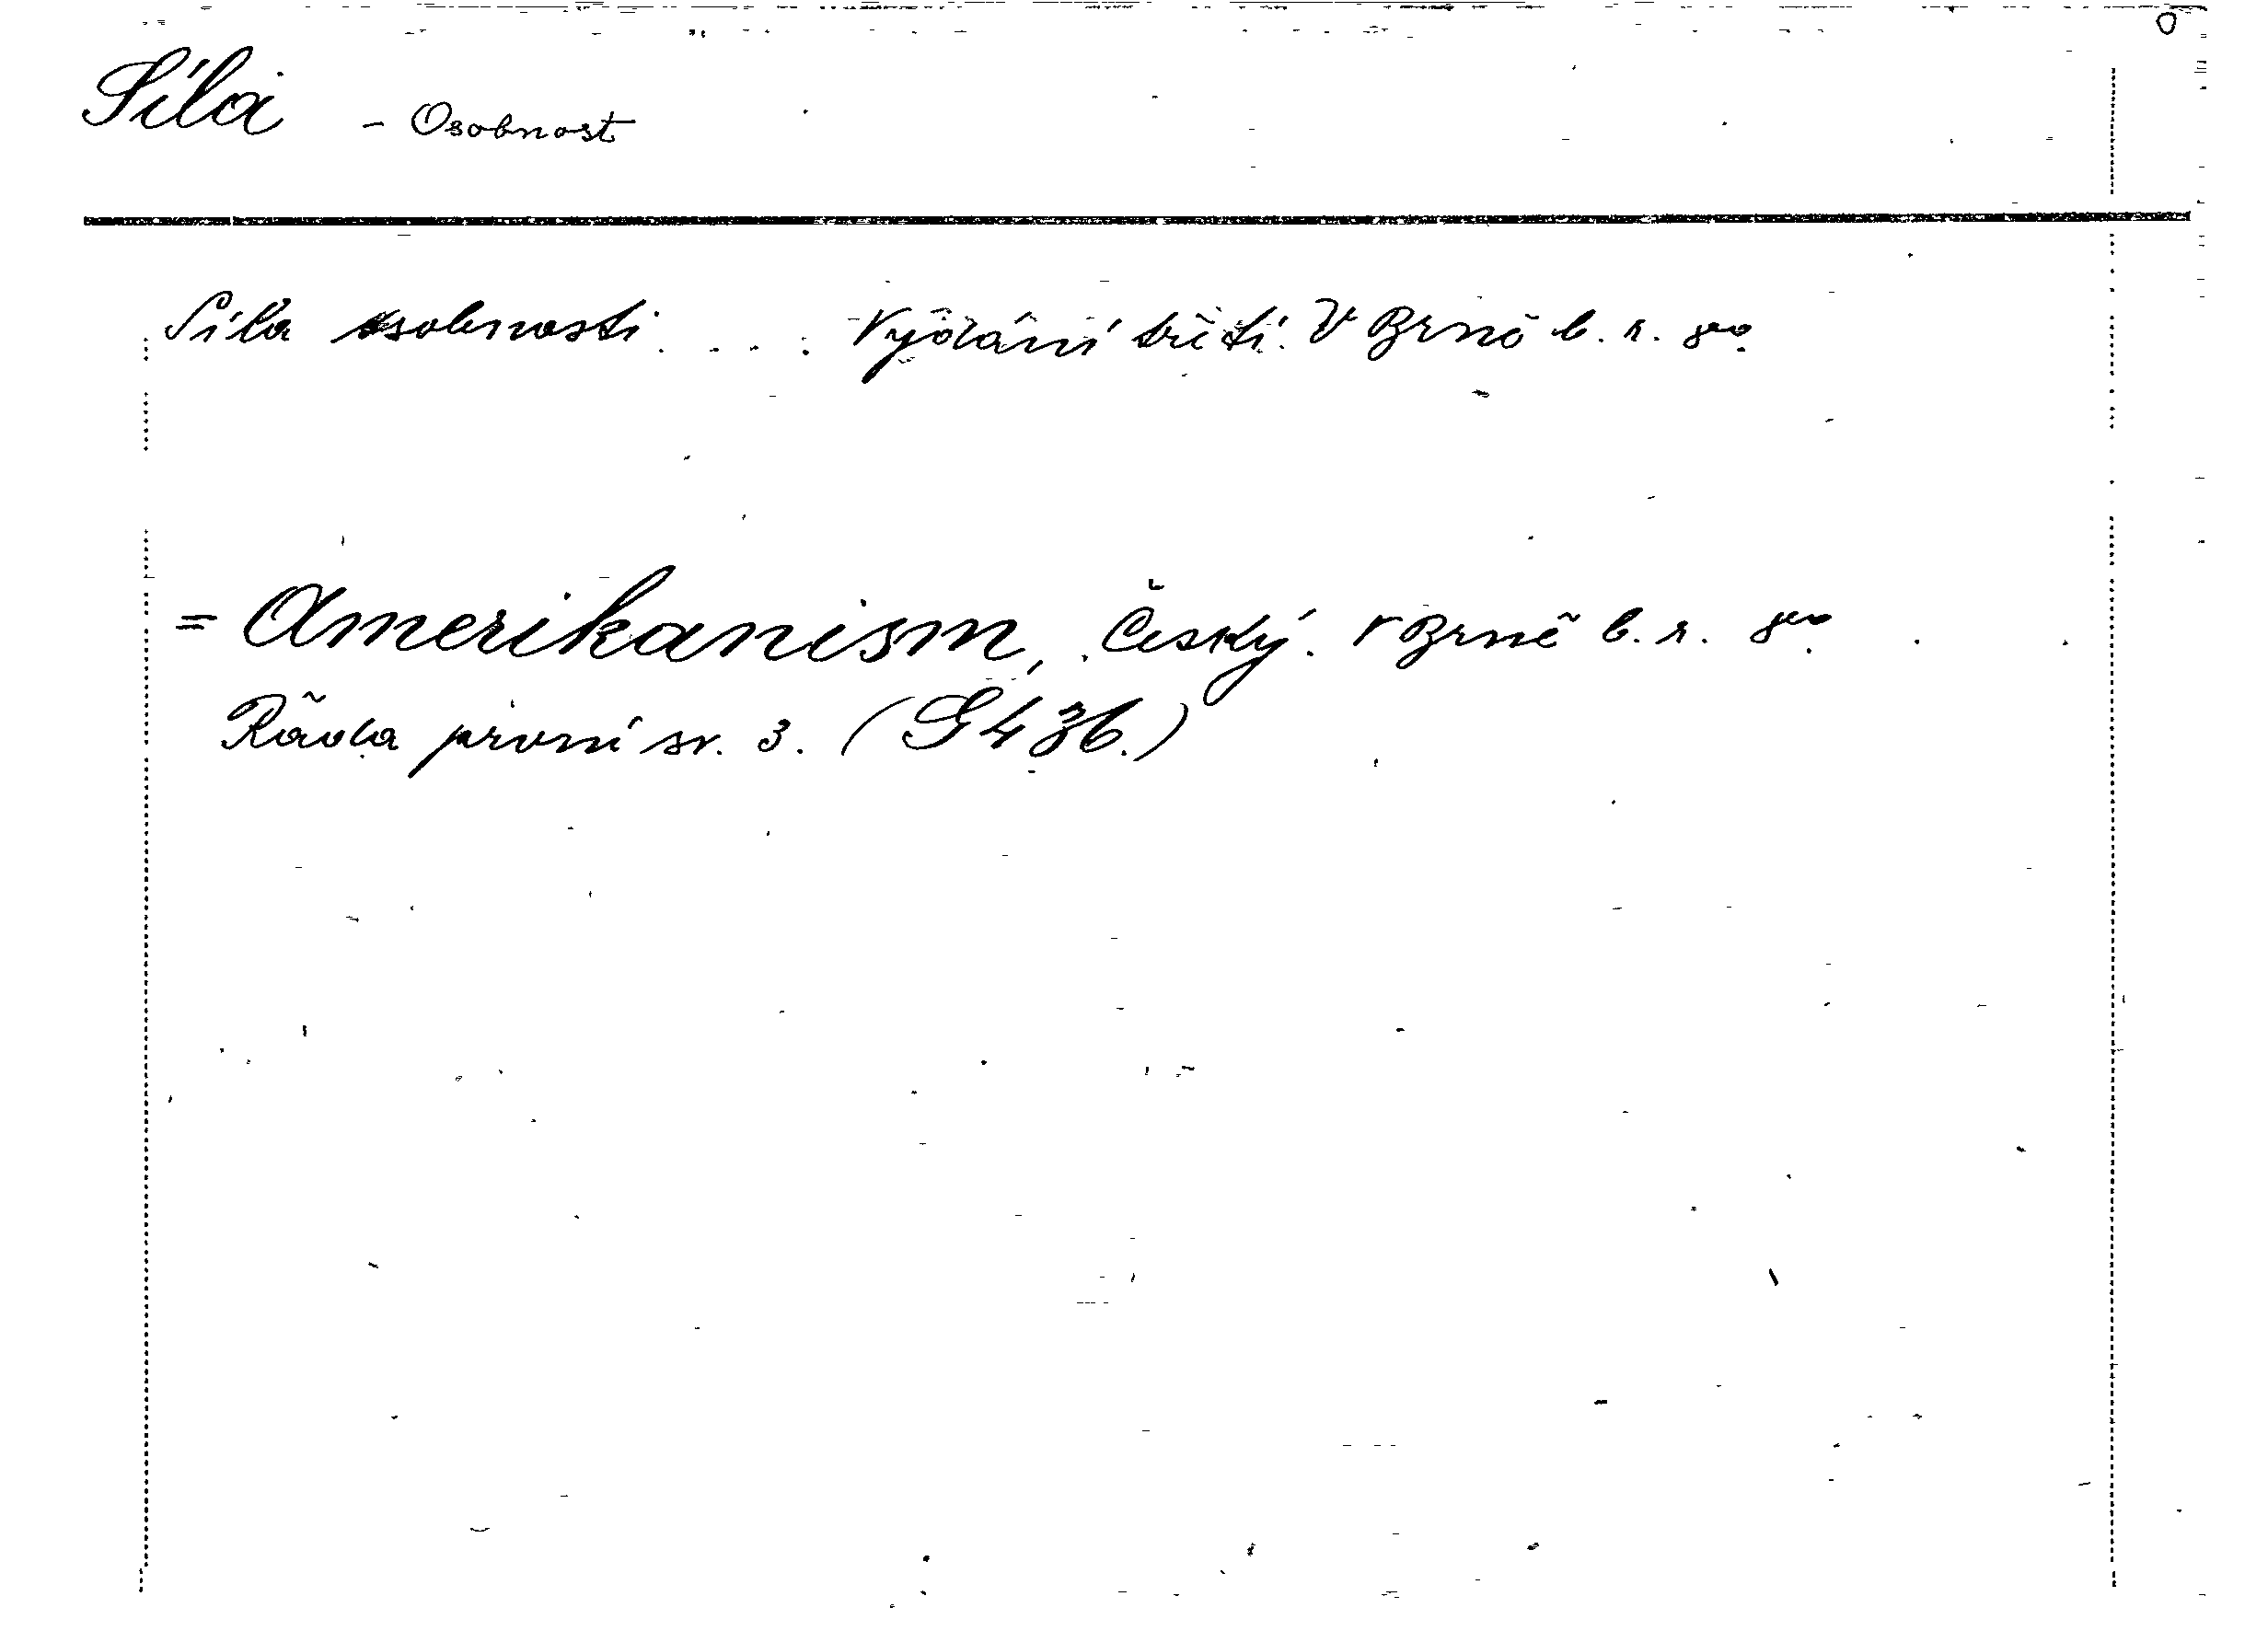 Síla - Osobnost
Síla osobnosti . . . . Vydání třetí. V Brně b. r. 8vo.
= Amerikanism, český. V Brně b. r. 8vo.
Řada první sv. 3. (G 436.)